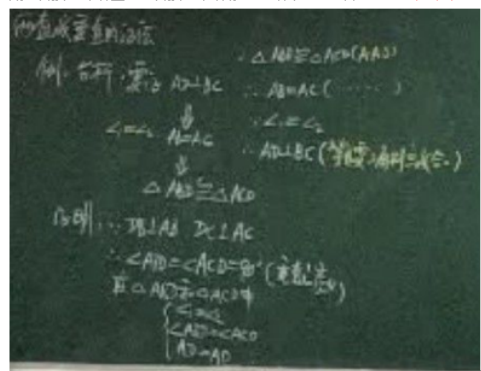 两直线垂直的证法
例. 分析: 要证 AD⊥BC
∠1=∠2 AB=AC
△ABD≌△ACD
证明: ∵ DB⊥AB DC⊥AC
∴ ∠ABD=∠ACD=90°(垂直
在△ABD和△ACD中
∠1=∠2
∠ABD=∠ACD
AD=AD
∴ △ABD≌△ACD(AAS)
∴ AB=AC(……)
∵ ∠1=∠2
∴ AD⊥BC(等腰三线合一)